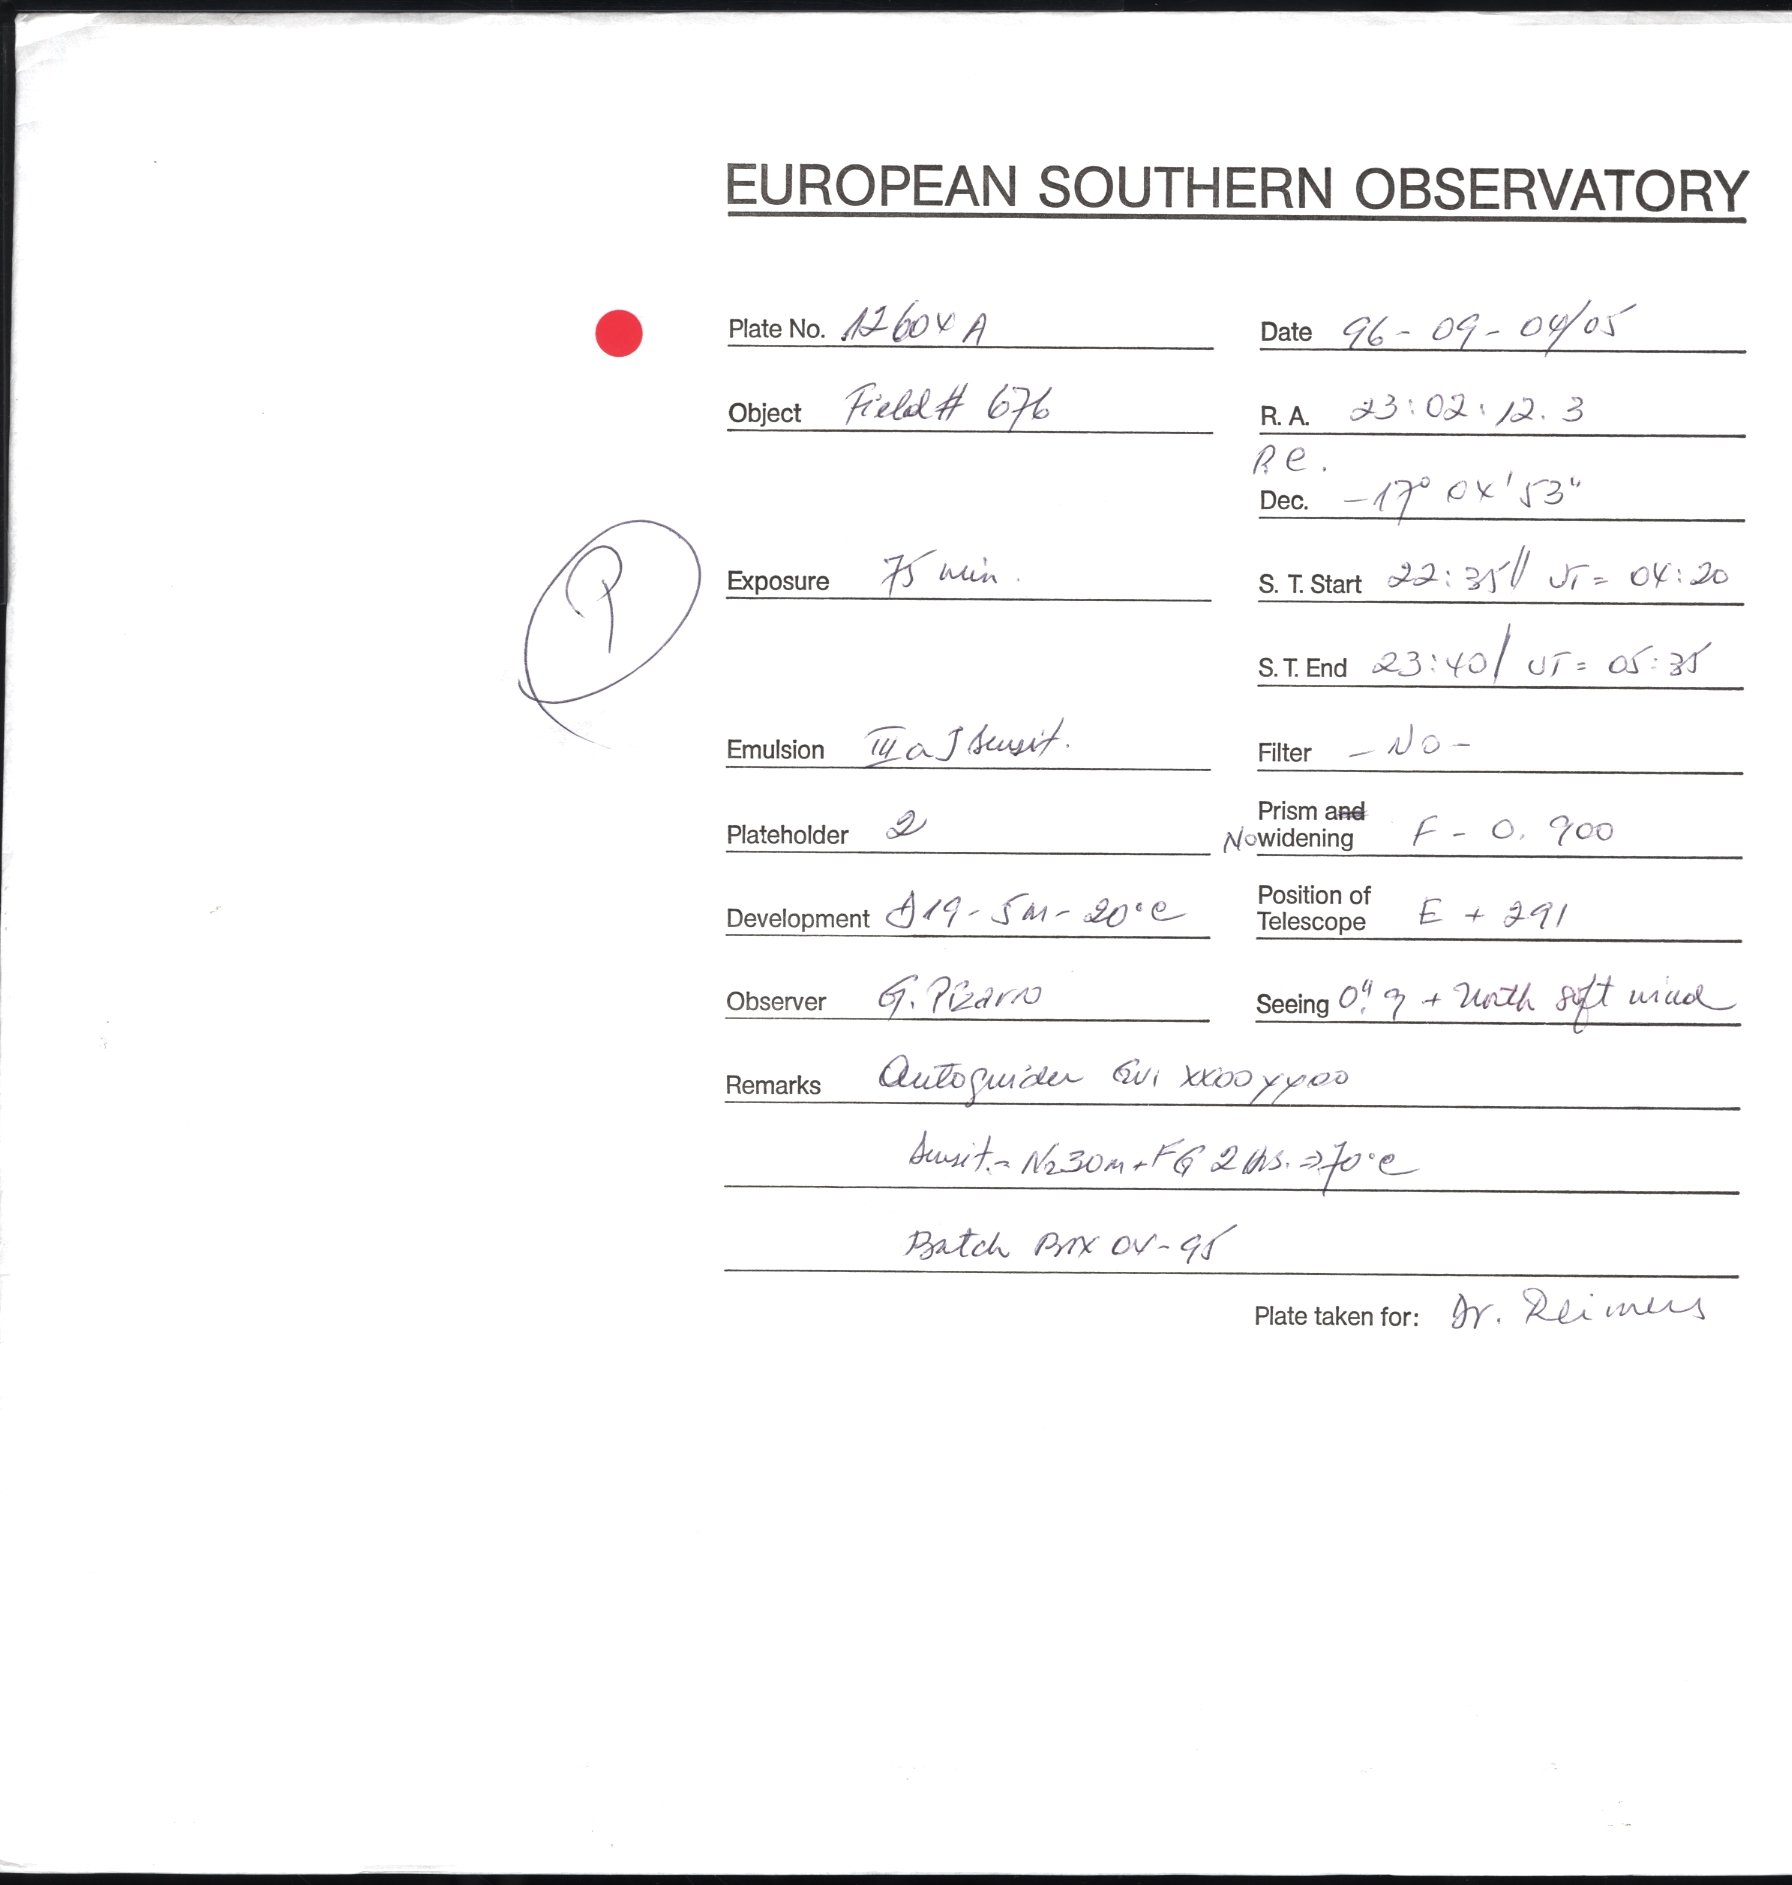 EUROPEAN SOUTHERN OBSERVATORY
Plate No. 12604 A
Date 96-09-04/05
Object Field # 676
R. A. 23:02:12.3
Dec. -17° 04' 53"
P
Exposure 75 min.
S. T. Start 22:35// UT = 04:20
S. T. End 23:40/ UT = 05:35
Emulsion III a J Sensit.
Filter - NO -
Plateholder 2
Prism and
No widening F - 0.900
Development D19 - 5m - 20°C
Position of
Telescope E + 291
Observer G. Pizarro
Seeing 0".9 + North soft wind
Remarks Autoguider XX00 YY00
Sensit. = N2 30m + FG 2 hrs. => 70°C
Batch Box 04-95
Plate taken for: Dr. Reimers